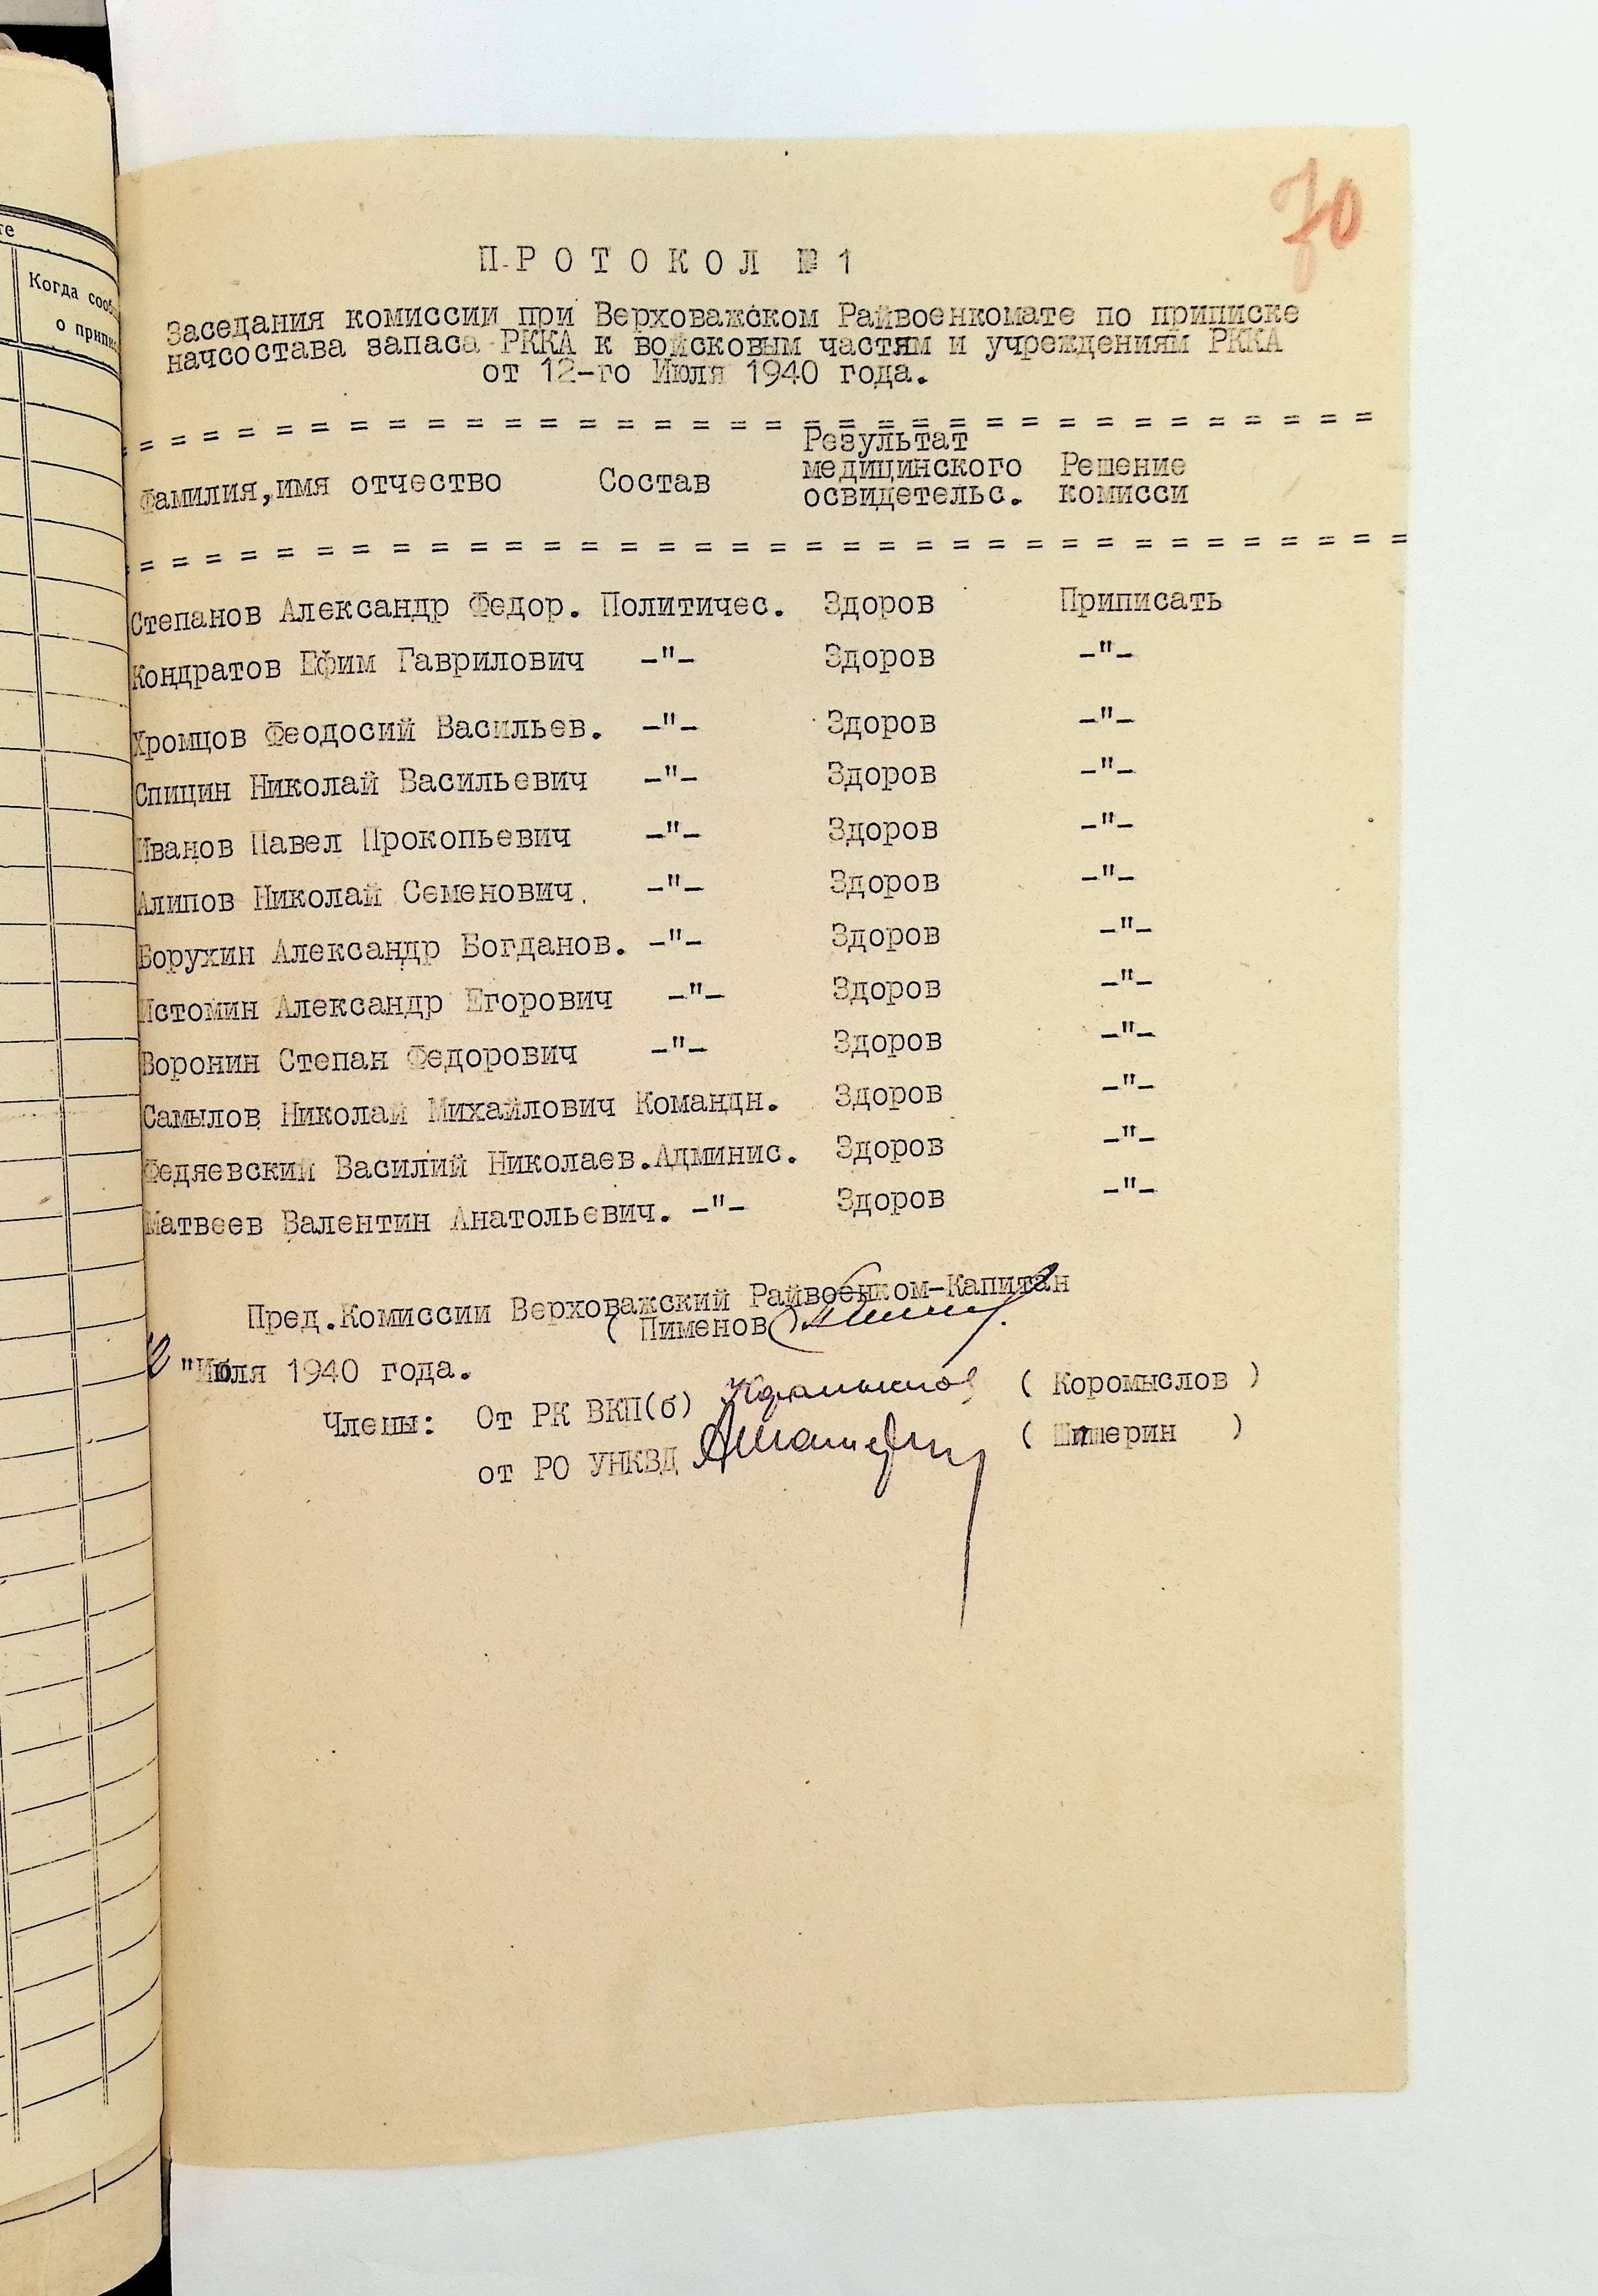 те
Когда сооб
о припис
70
П Р О Т О К О Л № 1
Заседания комиссии при Верховажском Райвоенкомате по приписке
начсостава запаса РККА к войсковым частям и учреждениям РККА
от 12-го Июля 1940 года.
= = = = = = = = = = = = = = = = = = = = = = = = = = = = = = = = =
Фамилия,имя отчество Состав Результат медицинского освидетельс. Решение комисси
= = = = = = = = = = = = = = = = = = = = = = = = = = = = = = = = = =
Степанов Александр Федор. Политичес. Здоров Приписать
Кондратов Ефим Гаврилович -"- Здоров -"-
Хромцов Феодосий Васильев. -"- Здоров -"-
Спицин Николай Васильевич -"- Здоров -"-
Иванов Павел Прокопьевич -"- Здоров -"-
Алипов Николай Семенович. -"- Здоров -"-
Борухин Александр Богданов. -"- Здоров -"-
Истомин Александр Егорович -"- Здоров -"-
Воронин Степан Федорович -"- Здоров -"-
Самылов Николай Михайлович Командн. Здоров -"-
Федяевский Василий Николаев.Админис. Здоров -"-
Матвеев Валентин Анатольевич. -"- Здоров -"-
Пред.Комиссии Верховажский Райвоенком-Капитан
( Пименов )
"Июля 1940 года.
Члены: От РК ВКП(б) Коромыслов ( Коромыслов )
от РО УНКВД ( Шишерин )